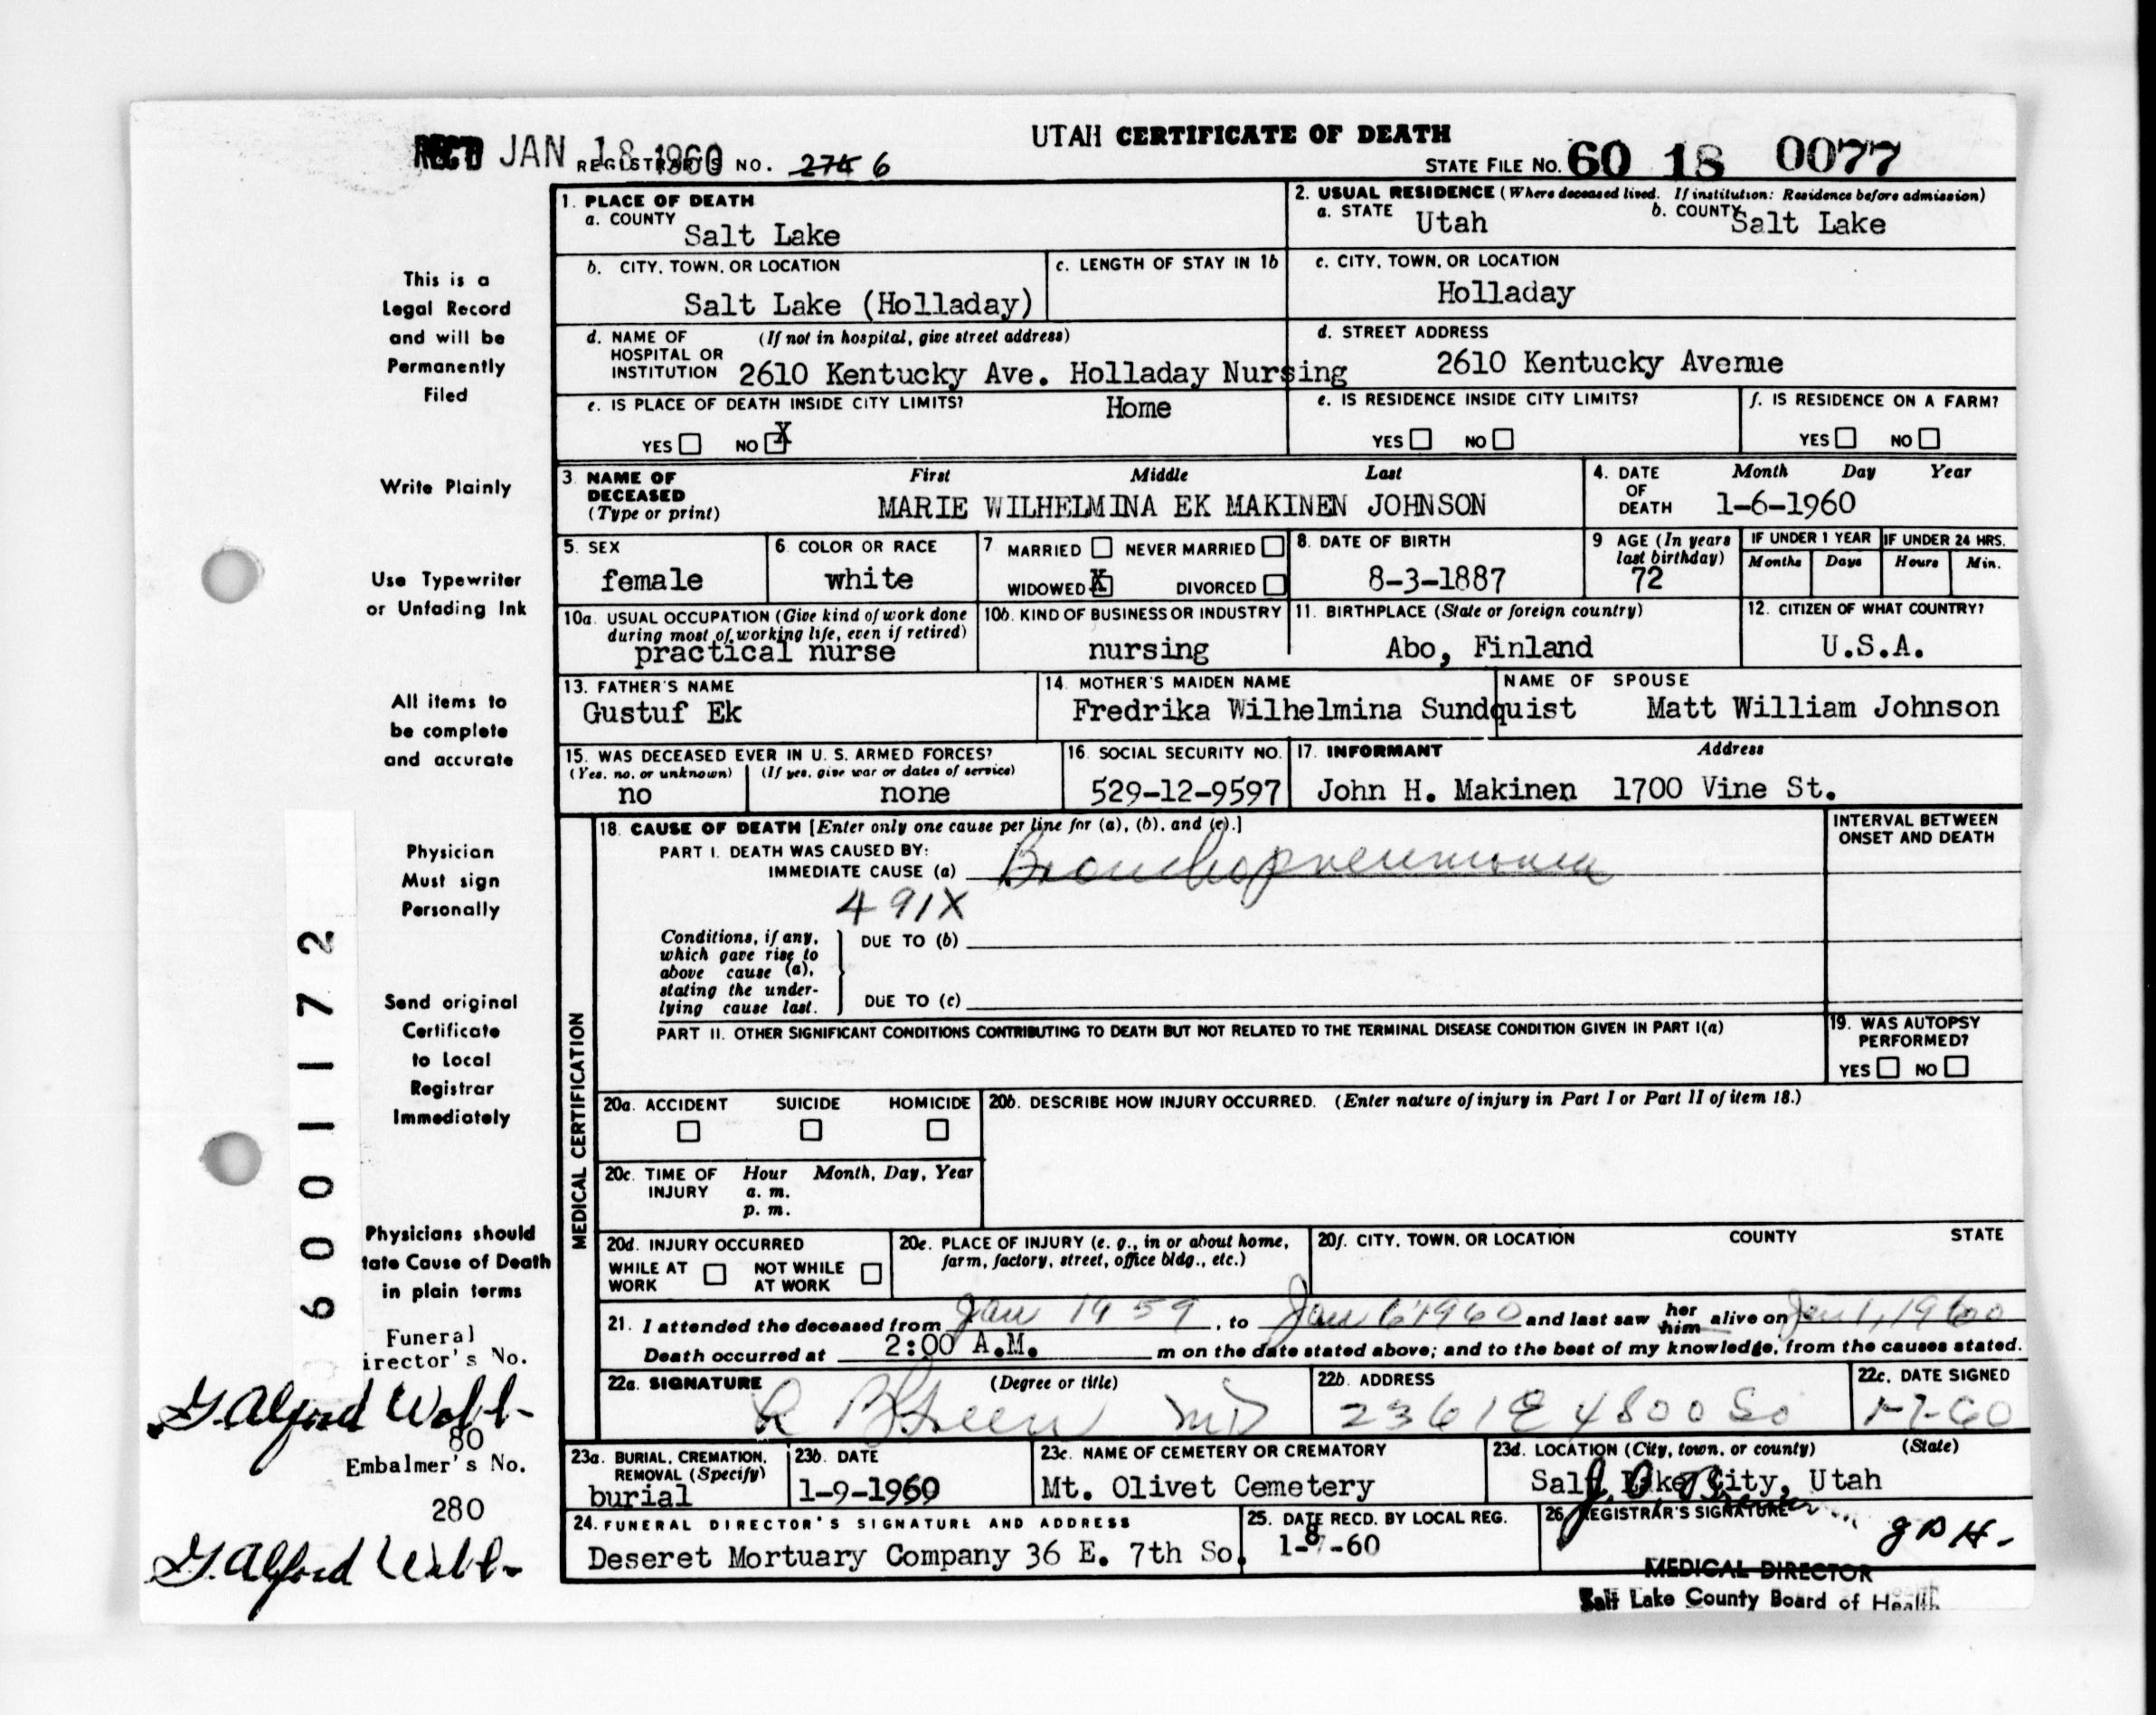 UTAH CERTIFICATE OF DEATH
REC'D JAN 18 1960 REGISTRAR'S NO. 274 6 STATE FILE NO. 60 18 0077
1. PLACE OF DEATH
a. COUNTY Salt Lake
2. USUAL RESIDENCE (Where deceased lived. If institution: Residence before admission)
a. STATE Utah b. COUNTY Salt Lake
b. CITY, TOWN, OR LOCATION Salt Lake (Holladay)
c. LENGTH OF STAY IN 1b
c. CITY, TOWN, OR LOCATION Holladay
d. NAME OF HOSPITAL OR INSTITUTION (If not in hospital, give street address) 2610 Kentucky Ave. Holladay Nursing Home
d. STREET ADDRESS 2610 Kentucky Avenue
e. IS PLACE OF DEATH INSIDE CITY LIMITS?
YES NO X
e. IS RESIDENCE INSIDE CITY LIMITS?
YES NO
f. IS RESIDENCE ON A FARM?
YES NO
3. NAME OF DECEASED (Type or print) First Middle Last
MARIE WILHELMINA EK MAKINEN JOHNSON
4. DATE OF DEATH Month Day Year
1-6-1960
5. SEX female
6 COLOR OR RACE white
7 MARRIED NEVER MARRIED
WIDOWED X DIVORCED
8. DATE OF BIRTH 8-3-1887
9 AGE (In years last birthday) 72
IF UNDER 1 YEAR Months Days
IF UNDER 24 HRS. Hours Min.
10a. USUAL OCCUPATION (Give kind of work done during most of working life, even if retired) practical nurse
10b. KIND OF BUSINESS OR INDUSTRY nursing
11. BIRTHPLACE (State or foreign country) Abo, Finland
12. CITIZEN OF WHAT COUNTRY? U.S.A.
13. FATHER'S NAME Gustuf Ek
14. MOTHER'S MAIDEN NAME Fredrika Wilhelmina Sundquist
NAME OF SPOUSE Matt William Johnson
15. WAS DECEASED EVER IN U. S. ARMED FORCES?
(Yes, no, or unknown) no
(If yes, give war or dates of service) none
16. SOCIAL SECURITY NO. 529-12-9597
17. INFORMANT Address
John H. Makinen 1700 Vine St.
MEDICAL CERTIFICATION
18. CAUSE OF DEATH [Enter only one cause per line for (a), (b), and (c).]
INTERVAL BETWEEN ONSET AND DEATH
PART I. DEATH WAS CAUSED BY:
IMMEDIATE CAUSE (a) Bronchopneumonia
491X
Conditions, if any, which gave rise to above cause (a), stating the underlying cause last.
DUE TO (b)
DUE TO (c)
PART II. OTHER SIGNIFICANT CONDITIONS CONTRIBUTING TO DEATH BUT NOT RELATED TO THE TERMINAL DISEASE CONDITION GIVEN IN PART I(a)
19. WAS AUTOPSY PERFORMED?
YES NO
20a. ACCIDENT SUICIDE HOMICIDE
20b. DESCRIBE HOW INJURY OCCURRED. (Enter nature of injury in Part I or Part II of item 18.)
20c. TIME OF INJURY Hour Month, Day, Year
a. m.
p. m.
20d. INJURY OCCURRED
WHILE AT WORK NOT WHILE AT WORK
20e. PLACE OF INJURY (e. g., in or about home, farm, factory, street, office bldg., etc.)
20f. CITY, TOWN, OR LOCATION COUNTY STATE
21. I attended the deceased from Jan 1959, to Jan 6 1960 and last saw her him alive on Jan 1, 1960
Death occurred at 2:00 A.M. m on the date stated above; and to the best of my knowledge, from the causes stated.
22a. SIGNATURE (Degree or title) R B Green MD
22b. ADDRESS 2361 E 4800 So
22c. DATE SIGNED 1-7-60
23a. BURIAL, CREMATION, REMOVAL (Specify) burial
23b. DATE 1-9-1960
23c. NAME OF CEMETERY OR CREMATORY Mt. Olivet Cemetery
23d. LOCATION (City, town, or county) (State)
Salt Lake City, Utah
24. FUNERAL DIRECTOR'S SIGNATURE AND ADDRESS
Deseret Mortuary Company 36 E. 7th So.
25. DATE RECD. BY LOCAL REG. 1-8-60
26. REGISTRAR'S SIGNATURE
MEDICAL DIRECTOR
Salt Lake County Board of Health
This is a
Legal Record
and will be
Permanently
Filed
Write Plainly
Use Typewriter
or Unfading Ink
All items to
be complete
and accurate
Physician
Must sign
Personally
Send original
Certificate
to Local
Registrar
Immediately
Physicians should
tate Cause of Death
in plain terms
Funeral
irector's No.
G. Alford Webb
80
Embalmer's No.
280
G. Alford Webb
6001172